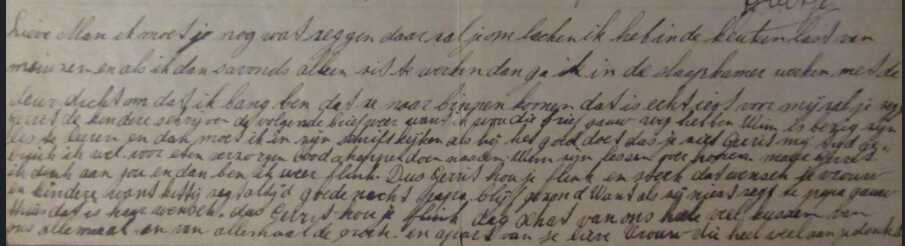 Lieve Man ik moet je nog wat zeggen daar zal je om lachen ik heb in de keuken last van
muizen en als ik dan savonds alleen zit te werken dan ga ik in de slaapkamer werken met de
deur dicht om dat ik bang ben dat ze naar binnen komen dat is echt iets voor mij zal je zeg
Gerrit de kindere schrijven de volgende brief weer want ik wou die brief gauw weg hebben Wim is bezig zijn
les te leren en dan moet ik in zijn schrift kijken als hij het goed doet dus je ziet Gerrit mijn tijd
ik wel voor eten verzorgen doen Wim zijn lessen over horen maar
ik denk aan jou en dan ben ik weer flink. Dus Gerrit hou je flink en sterk dat wensch je vrouw
en kindere want zegt altijd goede nacht papa blijf gezond Want als zij niest zegt ze papa gauw
thuis dat is haar wensch. dus Gerrit hou je flink dag schat van ons hele veel kussen van
ons allemaal en van allemaal de groeten en apart van je lieve Vrouw die heel veel aan je denkt